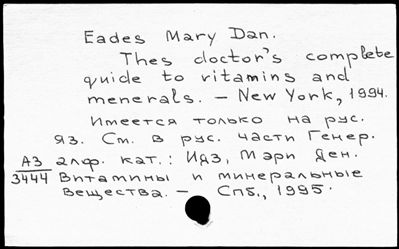 Eades Mary Dan.
Thes doctor's complete
guide to vitamins and
menerals. – New York, 1994.
Имеется только на рус.
яз. См. в рус. части Генер.
АЗ алф. кат.: Идз, Мэри Ден.
3444 Витамины и минеральные
вещества. – Спб., 1995.